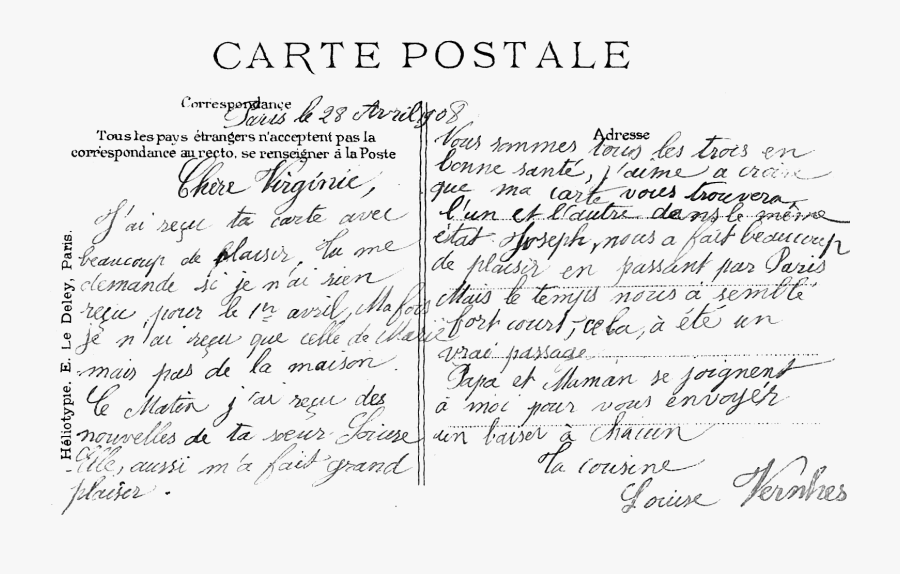 CARTE POSTALE
Correspondance
Paris le 28 Avril 1908
Tous les pays étrangers n'acceptent pas la
correspondance au recto, se renseigner à la Poste
Chère Virginie,
J'ai reçu ta carte avec
beaucoup de plaisir, tu me
demande si je n'ai rien
reçu pour le 1er avril, Ma fois
je n'ai reçu que celle de Marie
mais pas de la maison.
Ce Matin j'ai reçu des
nouvelles de ta sœur Louise
Elle, aussi m'a fait grand
plaisir.
Héliotypie. E. Le Deley, Paris.
Adresse
Nous sommes tous les trois en
bonne santé, j'aime a croire
que ma carte vous trouvera
l'un et l'autre dans le même
état Joseph, nous a fait beaucoup
de plaisir en passant par Paris
Mais le temps nous à semblé
fort court, cela, à été un
vrai passage
Papa et Maman se joignent
à moi pour vous envoyér
un baiser à chacun
Ta cousine
Louise Vernhes